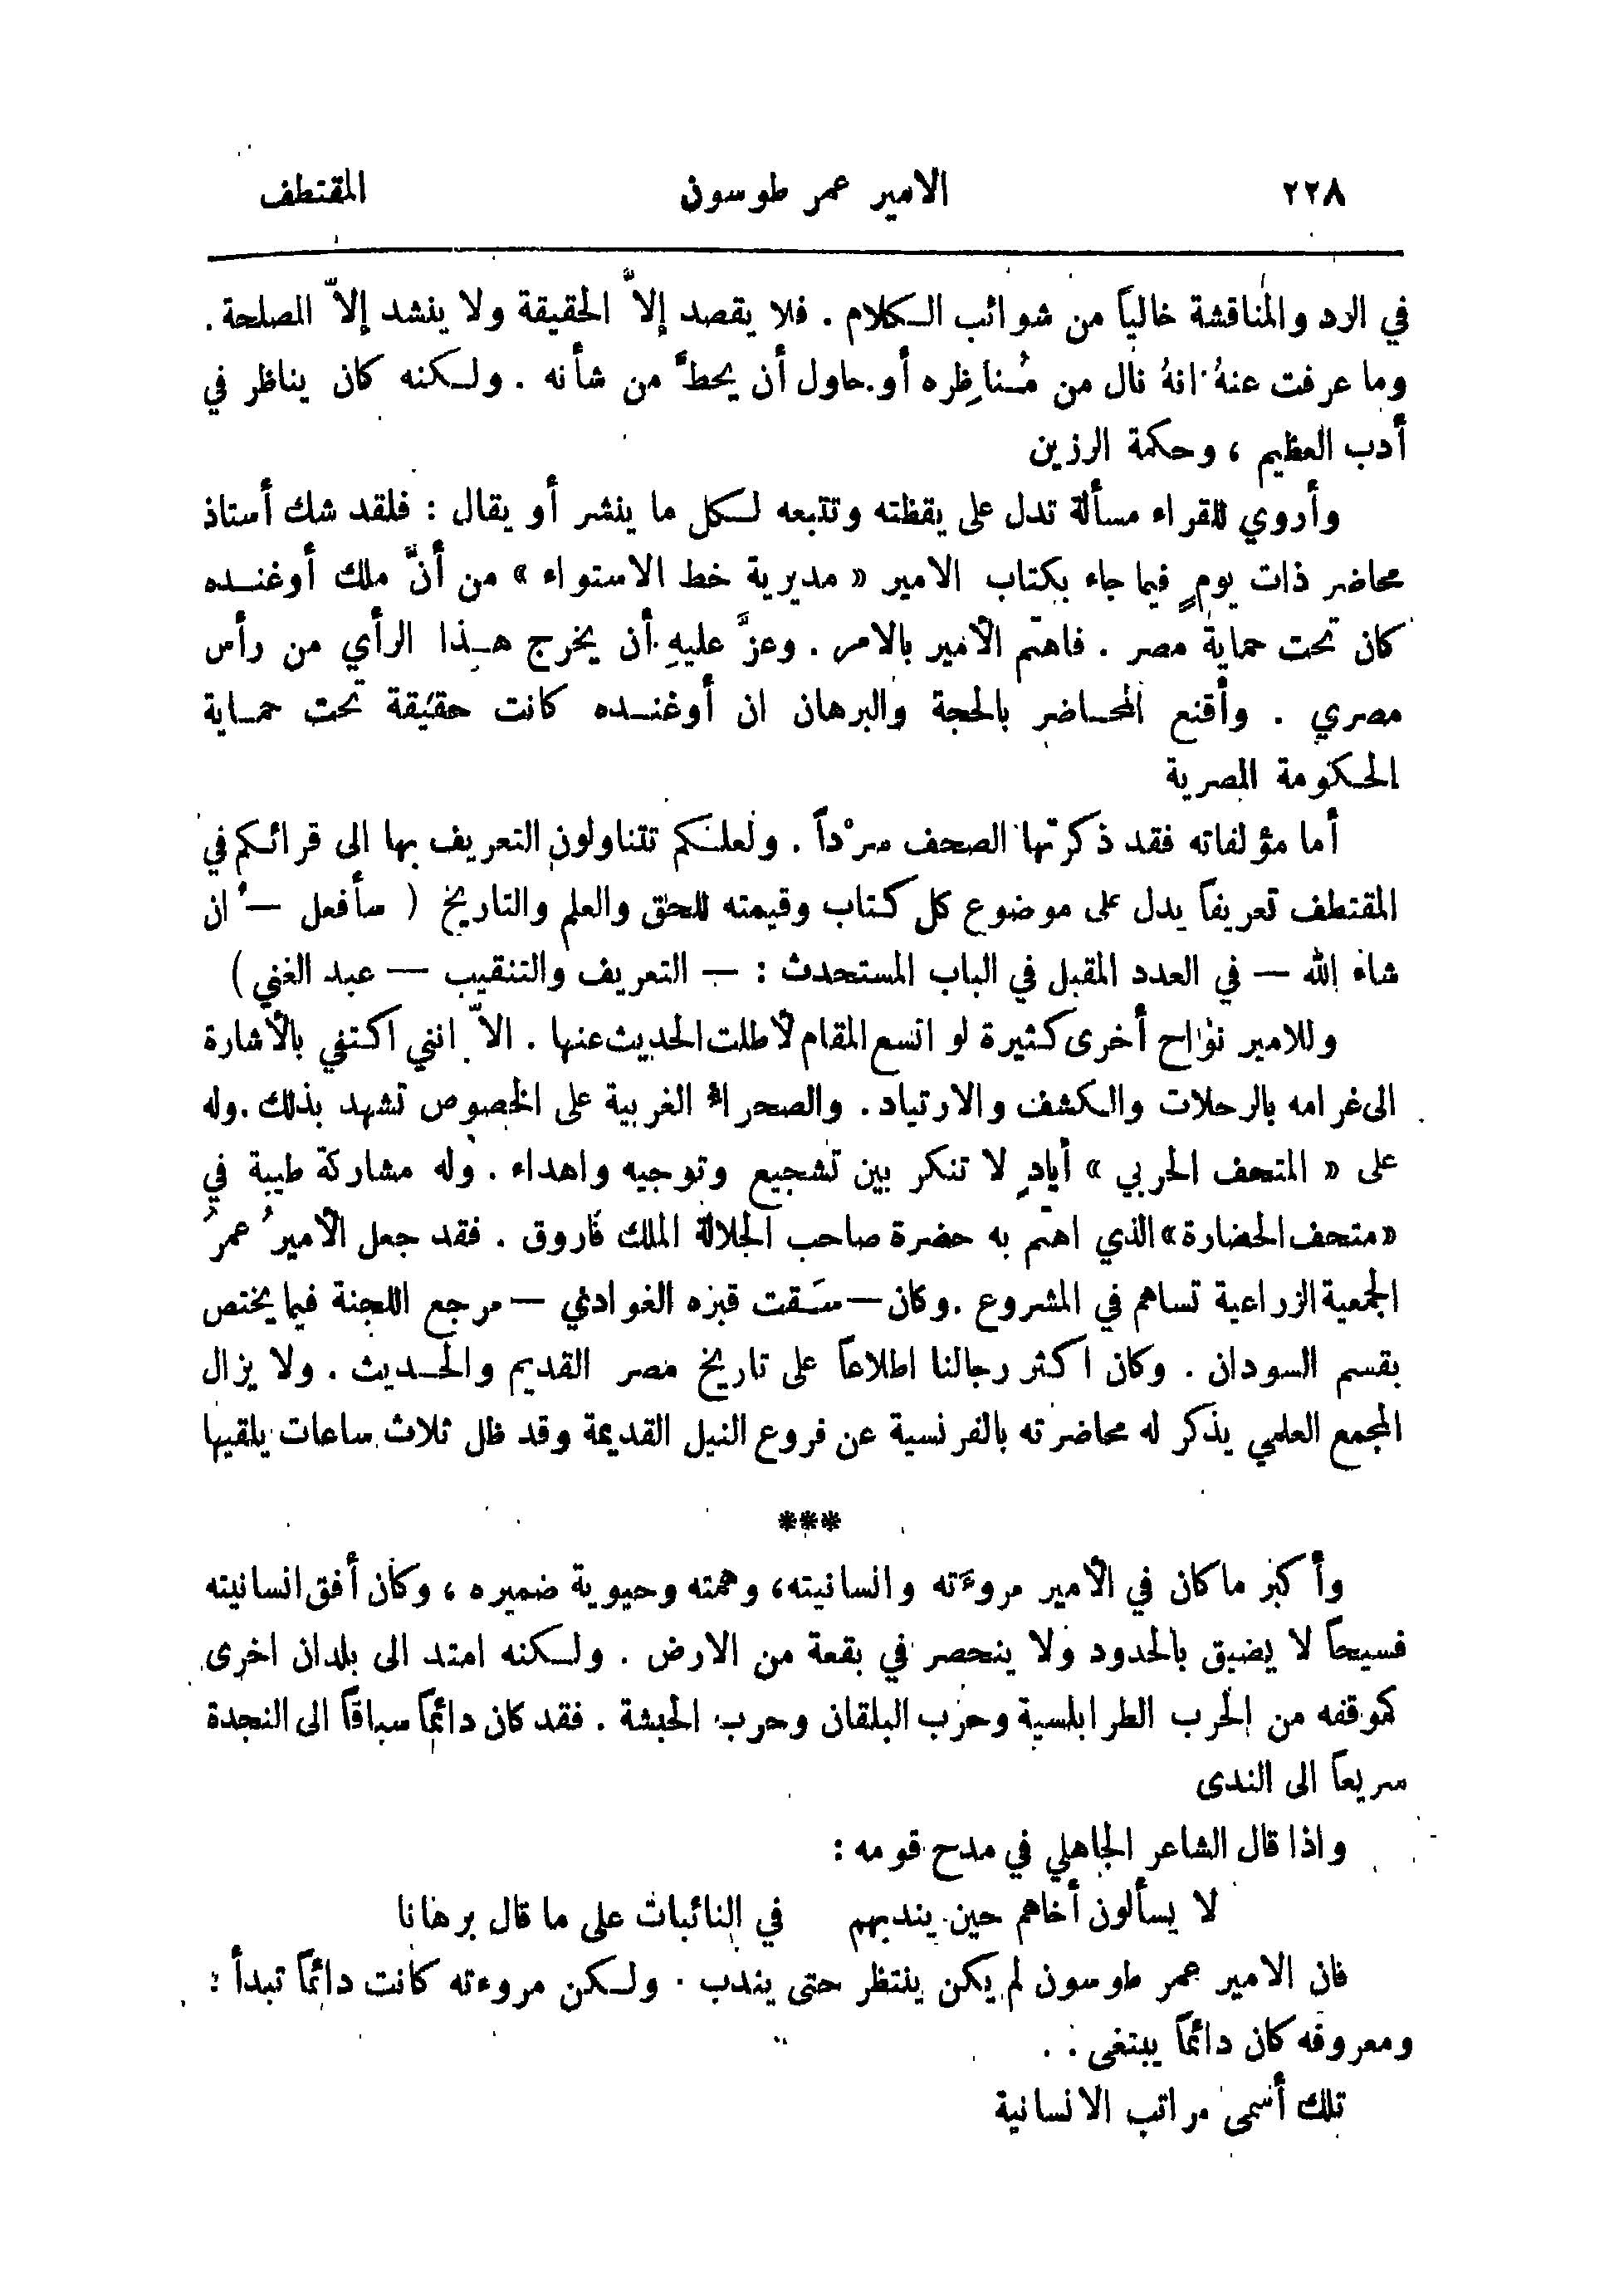 ٢٢٨ الامير عمر طوسون المقتطف
في الرد والمناقشة خالياً من شوائب الكلام . فلا يقصد إلاَّ الحقيقة ولا ينشد إلاَّ المصلحة .
وما عرفت عنهُ انهُ نال من مُناظِره أو حاول أن يحطَّ من شأنه . ولكنه كان يناظر في
أدب العظيم ، وحكمة الرزين
وأروي للقراء مسألة تدل على يقظته وتتبعه لكل ما ينشر أو يقال : فلقد شك أستاذ
محاضر ذات يومٍ فيما جاء بكتاب الامير « مديرية خط الاستواء » من أنَّ ملك أوغنده
كان تحت حماية مصر . فاهتم الأمير بالامر . وعزَّ عليهِ أن يخرج هذا الرأي من رأس
مصري . وأقنع المحاضر بالحجة والبرهان ان أوغنده كانت حقيقة تحت حماية
الحكومة المصرية
أما مؤلفاته فقد ذكرتها الصحف سرْداً . ولعلكم تتناولون التعريف بها الى قرائكم في
المقتطف تعريفاً يدل على موضوع كل كتاب وقيمته للحق والعلم والتاريخ ( سأفعل — ان
شاء الله — في العدد المقبل في الباب المستحدث : — التعريف والتنقيب — عبد الغني )
وللامير نواح أخرى كثيرة لو اتسع المقام لأطلت الحديث عنها . الاَّ انني اكتفي بالأشارة
الى غرامه بالرحلات والكشف والارتياد . والصحراء الغربية على الخصوص تشهد بذلك . وله
على « المتحف الحربي » أيادٍ لا تنكر بين تشجيع وتوجيه واهداء . وله مشاركة طيبة في
« متحف الحضارة » الذي اهتم به حضرة صاحب الجلالة الملك فاروق . فقد جعل الأميرُ عمرُ
الجمعية الزراعية تساهم في المشروع . وكان — سَقت قبره الغوادي — مرجع اللجنة فيما يختص
بقسم السودان . وكان اكثر رجالنا اطلاعاً على تاريخ مصر القديم والحديث . ولا يزال
المجمع العلمي يذكر له محاضرته بالفرنسية عن فروع النيل القديمة وقد ظل ثلاث ساعات يلقيها
***
وأكبر ما كان في الأمير مروءَته وانسانيته ، وهمته وحيوية ضميره ، وكان أفق انسانيته
فسيحاً لا يضيق بالحدود ولا ينحصر في بقعة من الارض . ولكنه امتد الى بلدان اخرى
كموقفه من الحرب الطرابلسية وحرب البلقان وحرب الحبشة . فقد كان دائماً سباقاً الى النجدة
سريعاً الى الندى
واذا قال الشاعر الجاهلي في مدح قومه :
لا يسألون أخاهم حين يندبهم في النائبات على ما قال برهانا
فان الامير عمر طوسون لم يكن ينتظر حتى يندب . ولكن مروءته كانت دائماً تبدأ :
ومعروفه كان دائماً يبتغى . .
تلك أسمى مراتب الانسانية